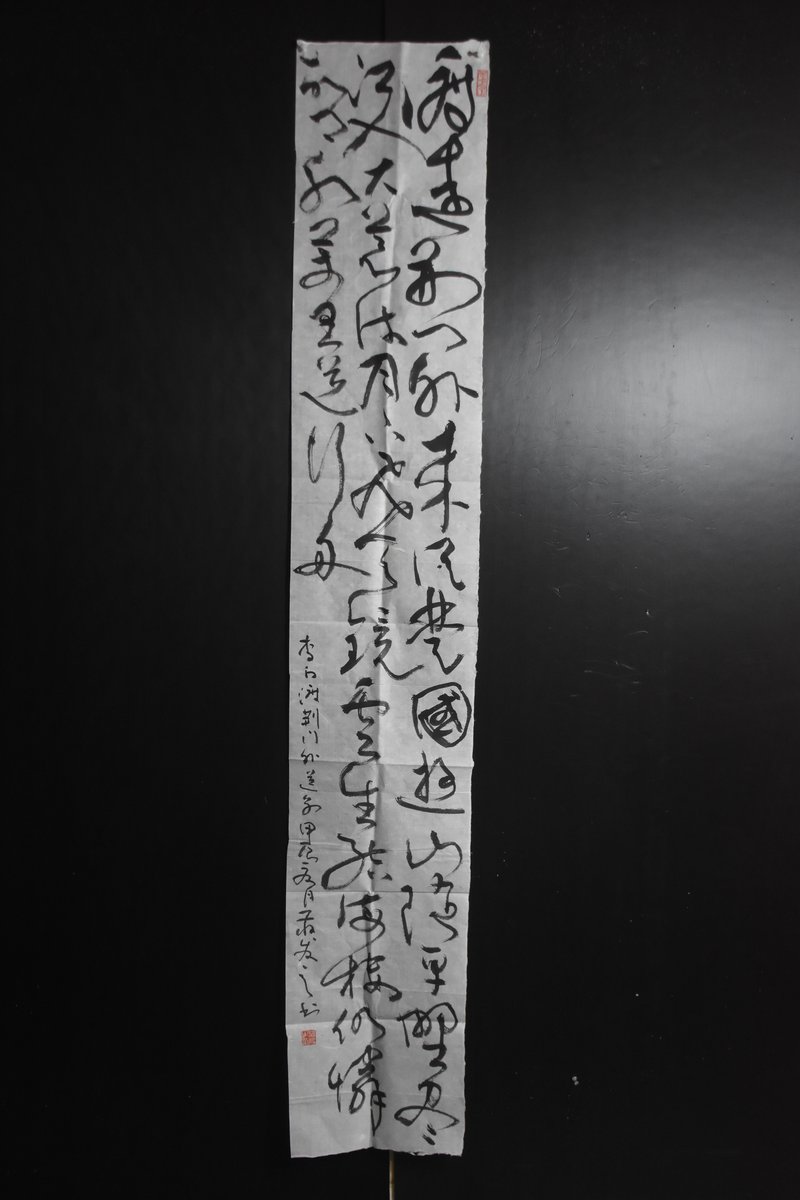 渡遠荊門外來從楚國遊山隨平野盡
江入大荒流月下飛天鏡雲生結海樓仍憐
故鄉水萬里送行舟
李白渡荊門外送別甲辰夏月